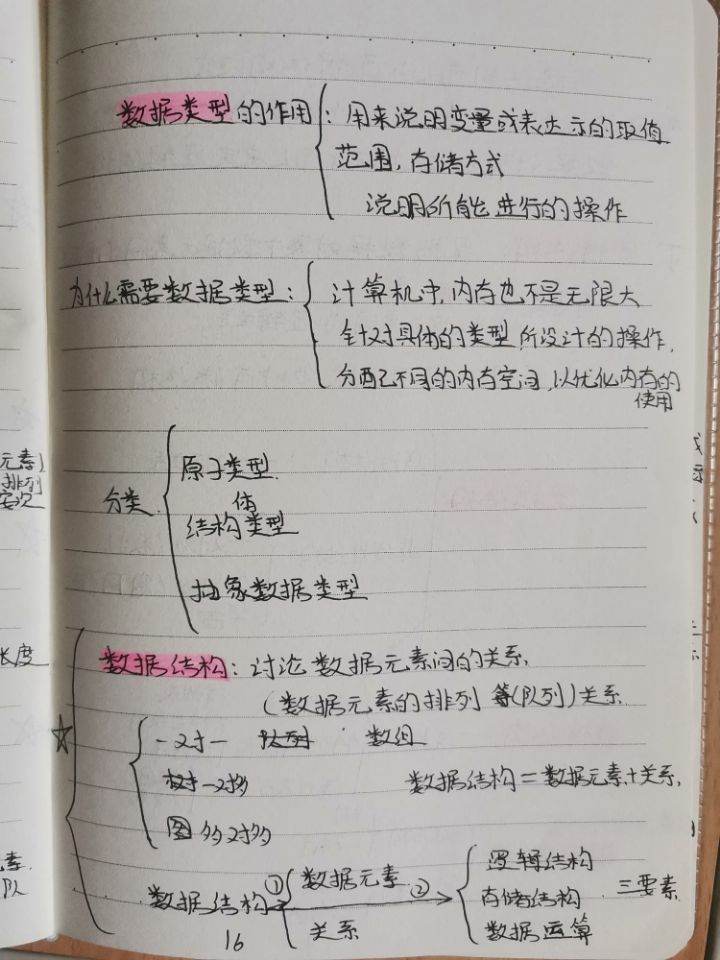 数据类型的作用：用来说明变量或表达示的取值
范围，存储方式
说明所能进行的操作
为什么需要数据类型：计算机中，内存也不是无限大
针对具体的类型所设计的操作，
分配不同的内存空间，以优化内存的
使用
分类
原子类型
体
结构类型
抽象数据类型
数据结构：讨论数据元素间的关系，
（数据元素的排列 等(队列)关系
一对一 队列 数组
树 一对多 数据结构＝数据元素＋关系，
图 多对多
数据结构 ① 数据元素 ② 逻辑结构
关系 存储结构 三要素
数据运算
16
元素)
排列
长度
素
队